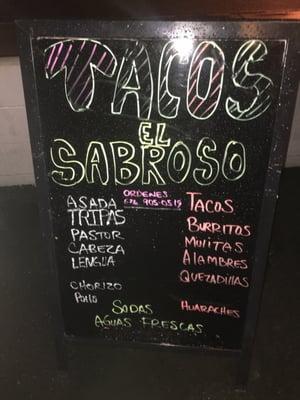 TACOS
EL
SABROSO
ORDENES
ASADA
TRIPAS
PASTOR
CABEZA
LENGUA
CHORIZO
POLLO
TACOS
BURRITOS
MULITAS
ALAMBRES
QUEZADILLAS
HUARACHES
SODAS
AGUAS FRESCAS